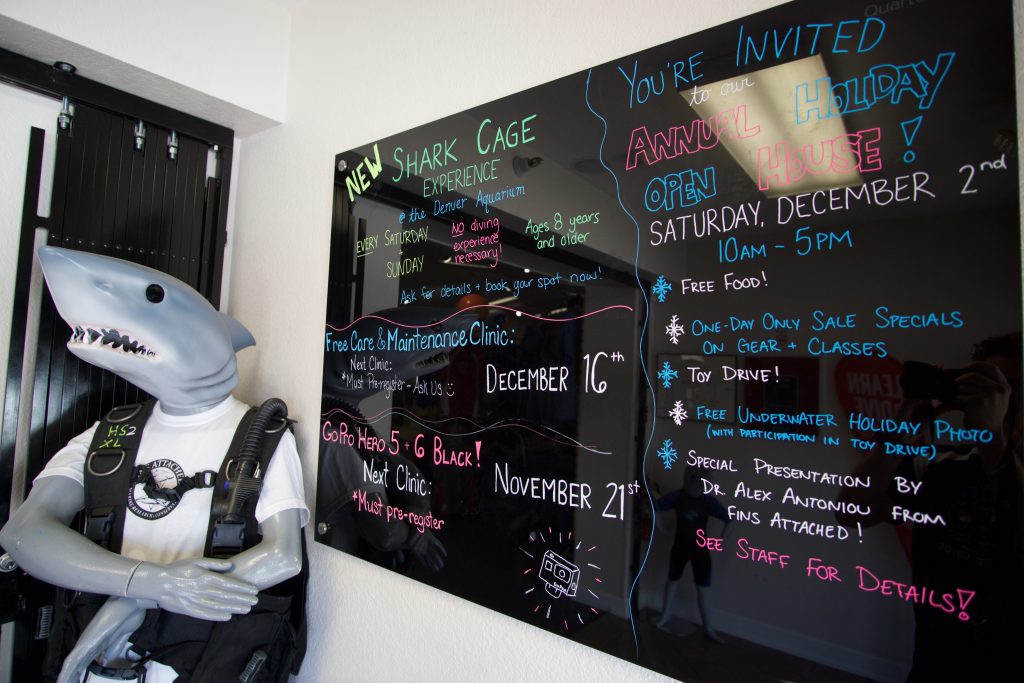 NEW SHARK CAGE
EXPERIENCE
@ the Denver Aquarium
EVERY SATURDAY
+
SUNDAY
NO diving
experience
necessary!
Ages 8 years
and older
Ask for details + book your spot now!
Free Care & Maintenance Clinic:
Next Clinic:
*Must Pre-register - Ask Us
DECEMBER 16th
GoPro HERO 5 + 6 BLACK!
Next Clinic:
*Must pre-register
NOVEMBER 21st
YOU'RE INVITED
to our
ANNUAL HOLIDAY
OPEN HOUSE!
SATURDAY, DECEMBER 2nd
10AM - 5PM
FREE FOOD!
ONE-DAY ONLY SALE SPECIALS
ON GEAR + CLASSES
TOY DRIVE!
FREE UNDERWATER HOLIDAY PHOTO
(WITH PARTICIPATION IN TOY DRIVE)
SPECIAL PRESENTATION BY
DR ALEX ANTONIOU FROM
FINS ATTACHED!
SEE STAFF FOR DETAILS!
HS2
XL
ATTACHED
LEARN